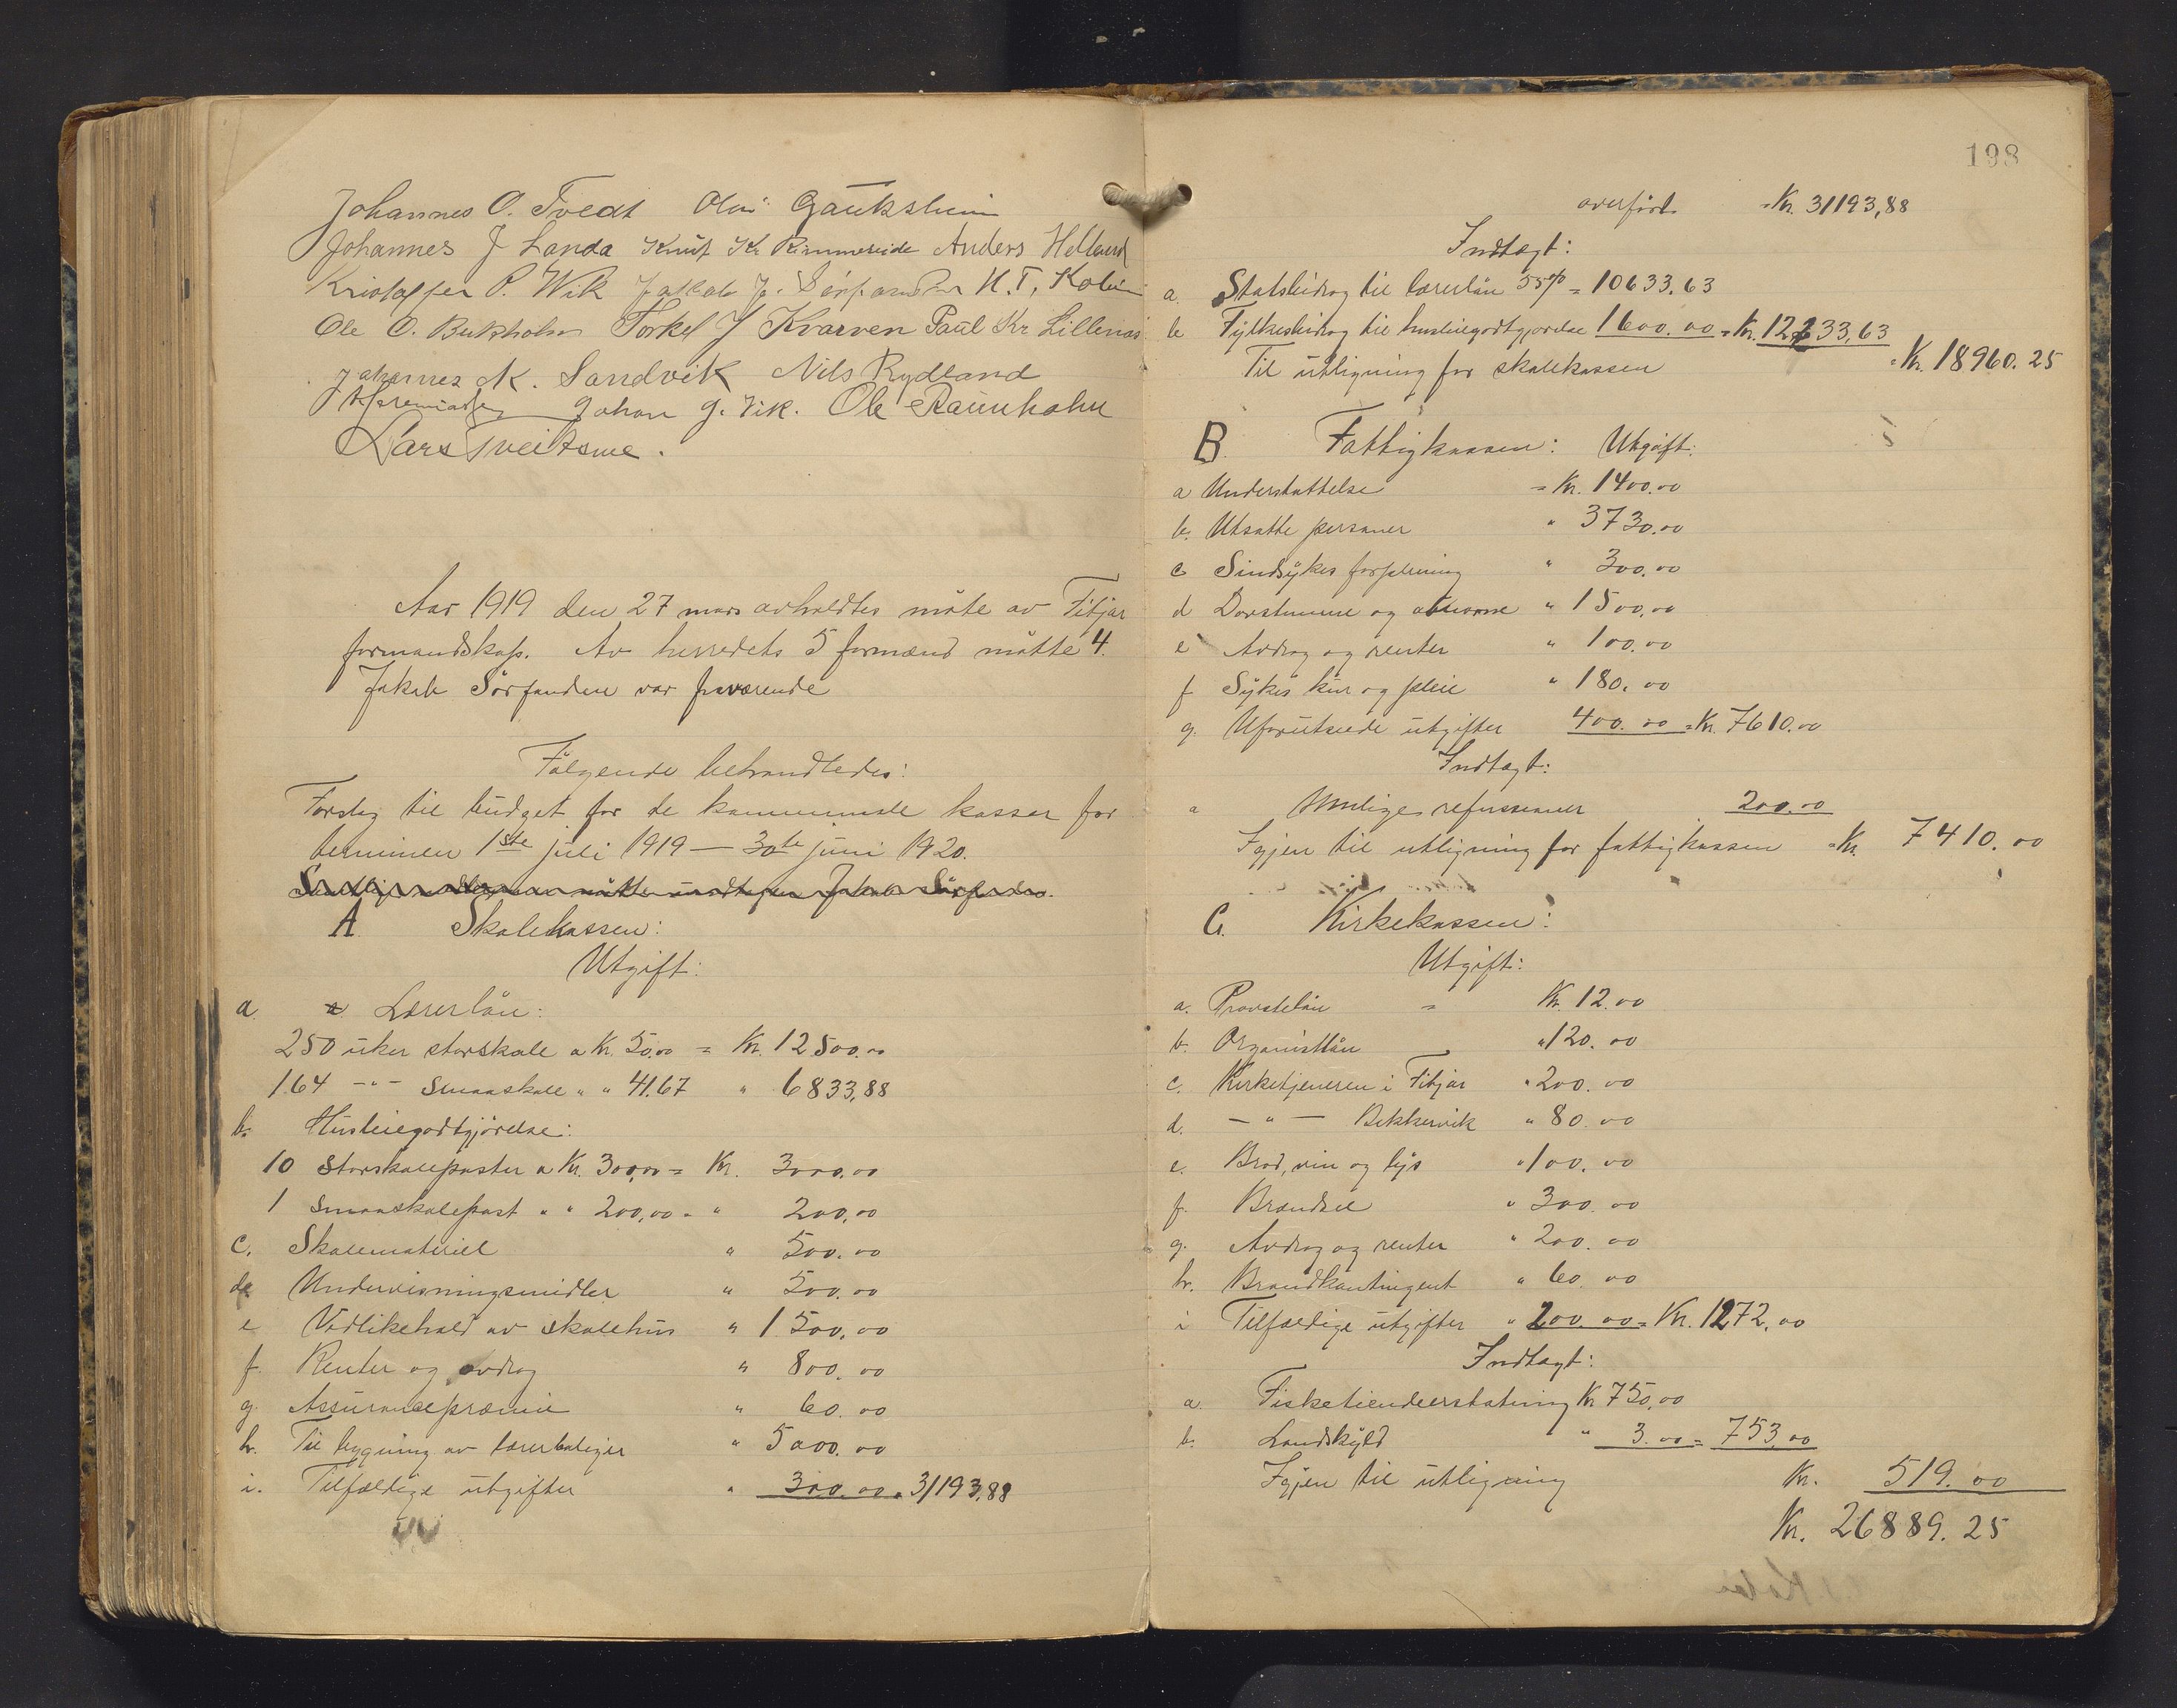 Johannes O. Tvedt Olai Gäuksheim
Johannes J Landa Knut Kr Rimmereide Anders Helland
Kristoffer P. Wik Jakob J. Sørfonden H. T. Koløen
Ole O. Bukholm Torkel J Kvarven Paul Kr Lillenäs
Johannes K. Sandvik Nils Rydland
Johan J. Vik. Ole Raunholm
Lars Tveitsme.
Aar 1919 den 27 mars avholdtes møte av Fitjar
formandskap. Av herredets 5 formænd møtte 4.
Jakob Sørfonden var fraværende
Følgende behandledes:
Forslag til budget for de kommunale kasser for
terminen 1ste juli 1919 — 30te juni 1920.
Samtlige møtte undtagen Jakob Sørfonden.
A Skolekassen:
Utgift:
a. Lærerløn:
250 uker storskole a Kr. 50.00 = Kr. 12500.00
164 -"- Smaaskole " " 41.67 " 6833,88
b. Husleiegodtgjörelse:
10 Storskoleposter a Kr. 300,00 = Kr. 3000.00
1 Smaaskolepost " " 200,00 " " 200,00
c. Skolemateriel " 500.00
d Undervisningsmidler " 500.00
e Vedlikehold av skolehus " 1500,00
f. Renter og avdrag " 800.00
g. Assurancepræmie " 60.00
h. Til bygning av lærerboliger " 5000.00
i. Tilfældige utgifter " 300.00 = 31193,88
198
overført. = Kr. 31193,88
Indtægt:
a. Statsbidrag til lærerløn 55% = 10633.63
b Fylkesbidrag til husleiegodtgjørelse 1600.00 = Kr. 12233,63
Til utligning for skolekassen = Kr. 18960.25
B. Fattigkassen: Utgift:
a Understøttelse = Kr. 1400.00
b. Utsatte personer " 3730.00
c Sindsykes forpleining " 300.00
d Døvstumme og abnorme " 1500,00
e Avdrag og renter " 100.00
f Sykes kur og pleie " 180.00
g. Uforutseede utgifter 400.00 = Kr. 7610.00
Indtægt:
a Mulige refusioner 200.00
Igjen til utligning for fattigkassen = Kr. 7410.00
C. Kirkekassen:
Utgift:
a. Provsteløn = Kr. 12.00
b. Organistløn " 120.00
c. Kirketjeneren i Fitjar " 200.00
d. — " — Bekkervik " 80.00
e. Brød, vin og lys " 100.00
f. Brændsel " 300.00
g. Avdrag og renter " 200.00
h. Brandkontingent " 60.00
i Tilfældige utgifter " 200.00 = Kr. 1272.00
Indtægt:
a. Fisketiendeerstatning Kr 750,00
b. Landskyld " 3.00 = 753.00
Igjen til utligning Kr. 519.00
Kr. 26889.25